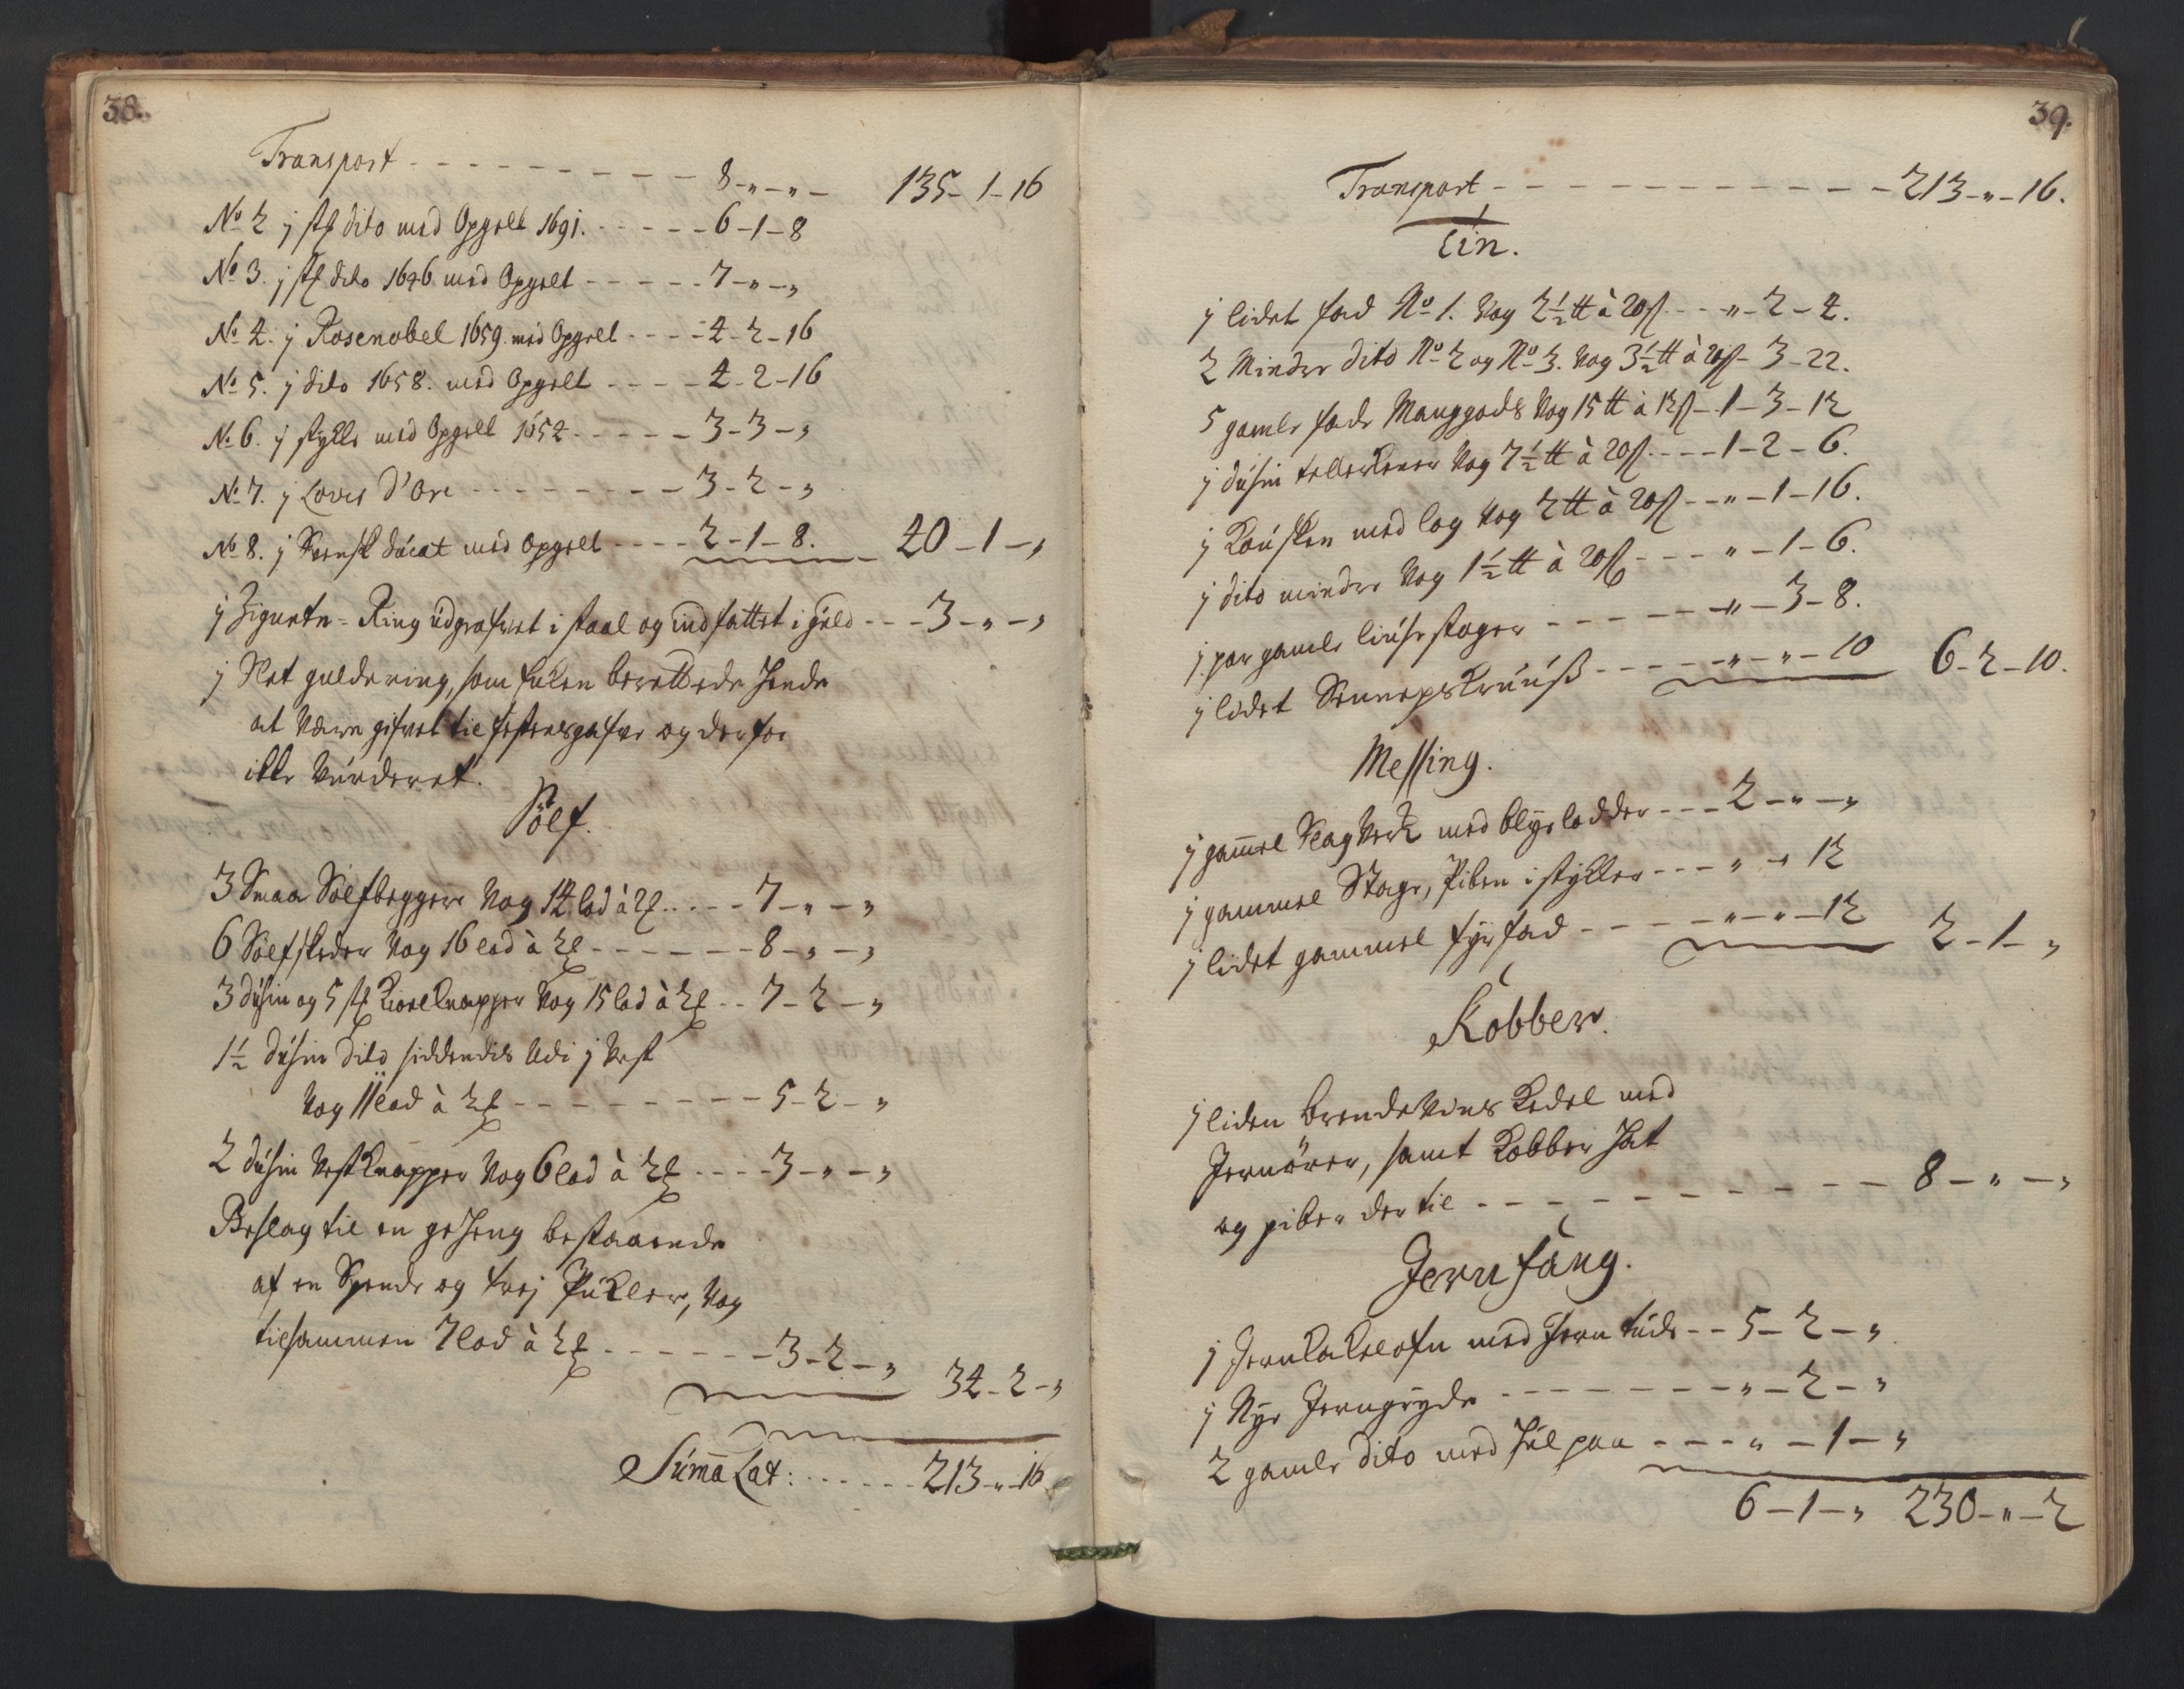 38.
Transport - - - - - - - - - 8 - „ - „ - 135 - 1 - 16
No 2 j st dito med Opgelt 1691. - - - - - 6 - 1 - 8
No 3. j st dito 1646 med Opgelt - - - - - 7 - „ - „
No 4. j Rosenobel 1659. med Opgelt - - - - 4 - 2 - 16
No 5. j dito 1658. med Opgelt - - - - 4 - 2 - 16
No 6. j stykke med Opgelt 1652 - - - - - 3 - 3 - „
No 7. j Lovis d'Ore - - - - - - - - 3 - 2 - „
No 8. j Svensk ducat med Opgelt - - - - 2 - 1 - 8. 40 - 1 - „
j Zignete-Ring udgrafvet i staal og indfattet i guld - - - 3 - „ - „
j Slet guldering, som Enken berettede hende
at være gifvet til festensgafve og derfor
ikke vurderet.
Sölf.
3 Smaa Sölfbeggere vog 14 lod à 2 - - - - 7 - „ - „
6 Sölfskeder vog 16 lod à 2 - - - - - - 8 - „ - „
3 dusin og 5 st Kiorelknapper vog 15 lod à 2 - - 7 - 2 - „
1½ dusin dito siddendes udi j vest
vog 11 lod à 2 - - - - - - - - 5 - 2 - „
2 dusin vestknapper vog 6 lod à 2 - - - - 3 - „ - „
Beslag til en geheng bestaaende
af en Spende og trej Pukler, vog
tilsammen 7 lod à 2 - - - - - - 3 - 2 - „ 34 - 2 - „
Summa Lat: - - - - - 213 - „ - 16
39.
Transport - - - - - - - - - - - - 213 - „ - 16.
Tin.
j lidet fad No 1. vog 2½ ℔ à 20 ß - - - „ - 2 - 2.
2 Mindre dito No 2 og No 3. vog 3½ ℔ à 20 ß - 3 - 22.
5 gamle fade Manggods vog 15 ℔ à 12 ß - - 1 - 3 - 12
j dusin tellerkener vog 7½ ℔ à 20 ß - - - - 1 - 2 - 6.
j Kousken med log vog 2 ℔ à 20 ß - - „ - 1 - 16.
j dito mindre vog 1½ ℔ à 20 ß - - - - „ - 1 - 6.
j par gamle liusestager - - - - - „ - 3 - 8.
j lidet Senneps Kruuß - - - - - „ - „ - 10 6 - 2 - 10.
Messing.
j gammel Slagverk med blye lodder - - - 2 - „ - „
j gammel Stage, Piben i stykker - - - „ - „ 12
j lidet gammel fyrfad - - - - - „ - „ - 12 2 - 1 - „
Kobber.
j liden brendevins Kedel med
Jernörer, samt Kobber Hat
og piber der til - - - - - - - - - - - 8 - „ - „
Jernfang.
j Jernkakelofn med Jerntude - - 5 - 2 - „
j Nye Jerngryde - - - - - - - - „ - 2 - „
2 gamle dito med Hul paa - - - - „ - 1 - „
6 - 1 - „ 230 - „ - 2